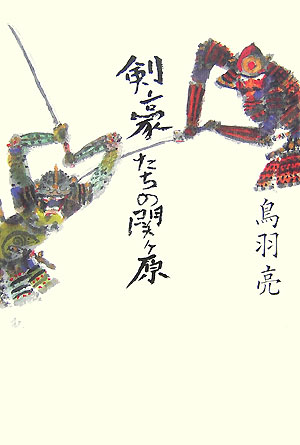 剣豪たちの関ヶ原
鳥羽亮